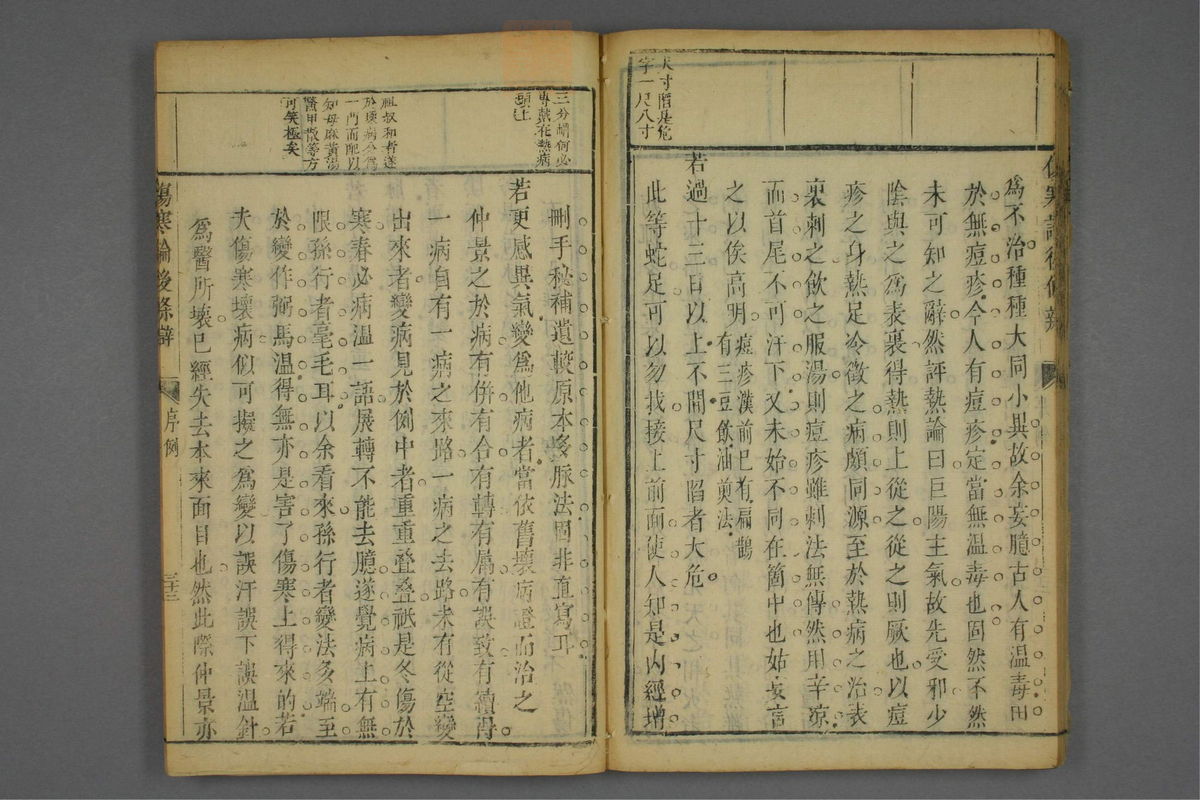 尺寸陷是危
字一尺八寸
爲不治種種大同小異故余妄臆古人有温毒毋
於無痘疹今人有痘疹定當無温毒也固然不然
未可知之辭然評熱論曰巨陽主氣故先受邪少
陰與之爲表裏得熱則上從之從之則厥也以痘
疹之身熱足冷徵之病頗同源至於熱病之治表
裏刺之飲之服湯則痘疹雖刺法無傳然用辛凉
而首尾不可汗下又未始不同在箇中也姑妄言
之以俟高明痘疹漢前已有扁鵲
有三豆飲油劑法
若過十三日以上不間尺寸陷者大危
此等蛇足可以勿找接上前面使人知是内經增
三分
專禁在熱病
頭上
祖叔和者遂
於壞病分爲
一門而配以
知母麻黃湯
鱉甲散等方
可笑極矣
刪手秘補遺較原本多脉法固非直寫耳
若更感異氣變爲他病者當依舊壞病證而治之
仲景之於病有併有合有轉有屬有誤致有續得
一病自有一病之來路一病之去路未有從空變
出來者變病見於例中者重重叠叠祇是冬傷於
寒春必病温一語展轉不能去臆遂覺病上有無
限孫行者毫毛耳以余看來孫行者變法多端至
於變作弼馬温得無亦是害了傷寒上得來的若
夫傷寒壞病似可擬之爲變以誤汗誤下誤温針
爲醫所壞已經失去本來面目也然此際仲景亦
傷寒論後條辯
序例
三十三